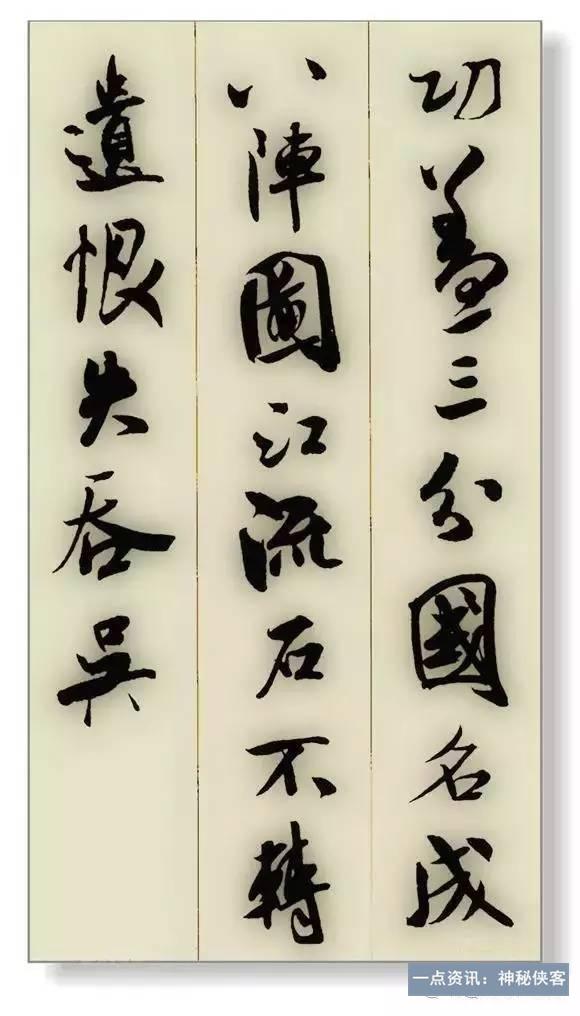 功蓋三分國名成
八陣圖江流石不轉
遺恨失吞吳
一点资讯：神秘侠客